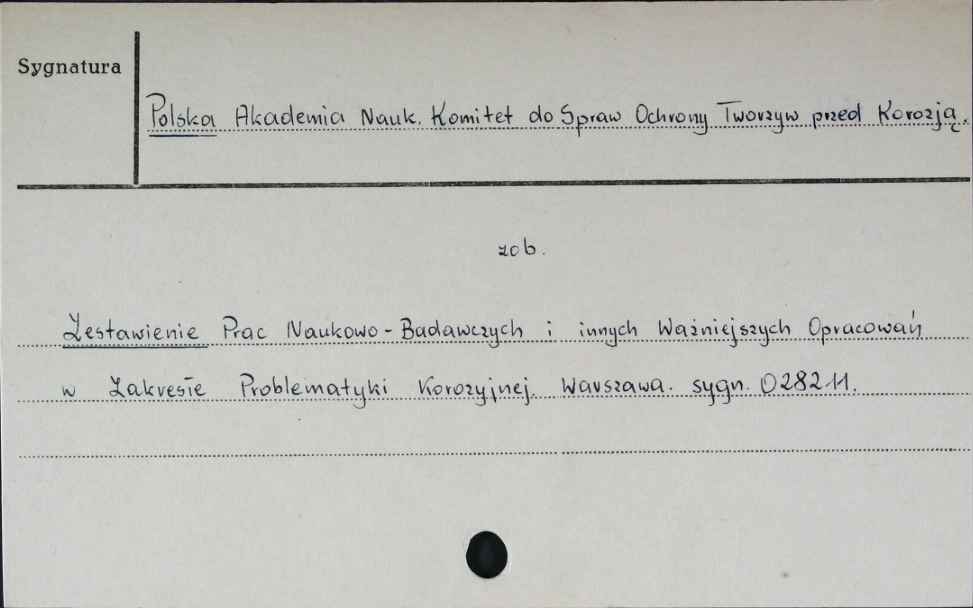 Sygnatura
Polska Akademia Nauk. Komitet do Spraw Ochrony Tworzyw przed Korozją.
zob.
Zestawienie Prac Naukowo-Badawczych i innych Ważniejszych Opracowań
w Zakresie Problematyki Korozyjnej. Warszawa. sygn. 0282 11.